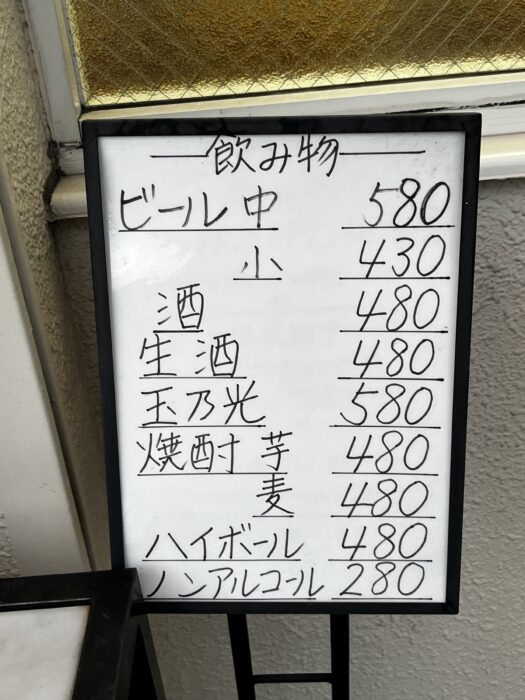 飲み物
ビール 中 580
小 430
酒 480
生酒 480
玉乃光 580
焼酎 芋 480
麦 480
ハイボール 480
ノンアルコール 280